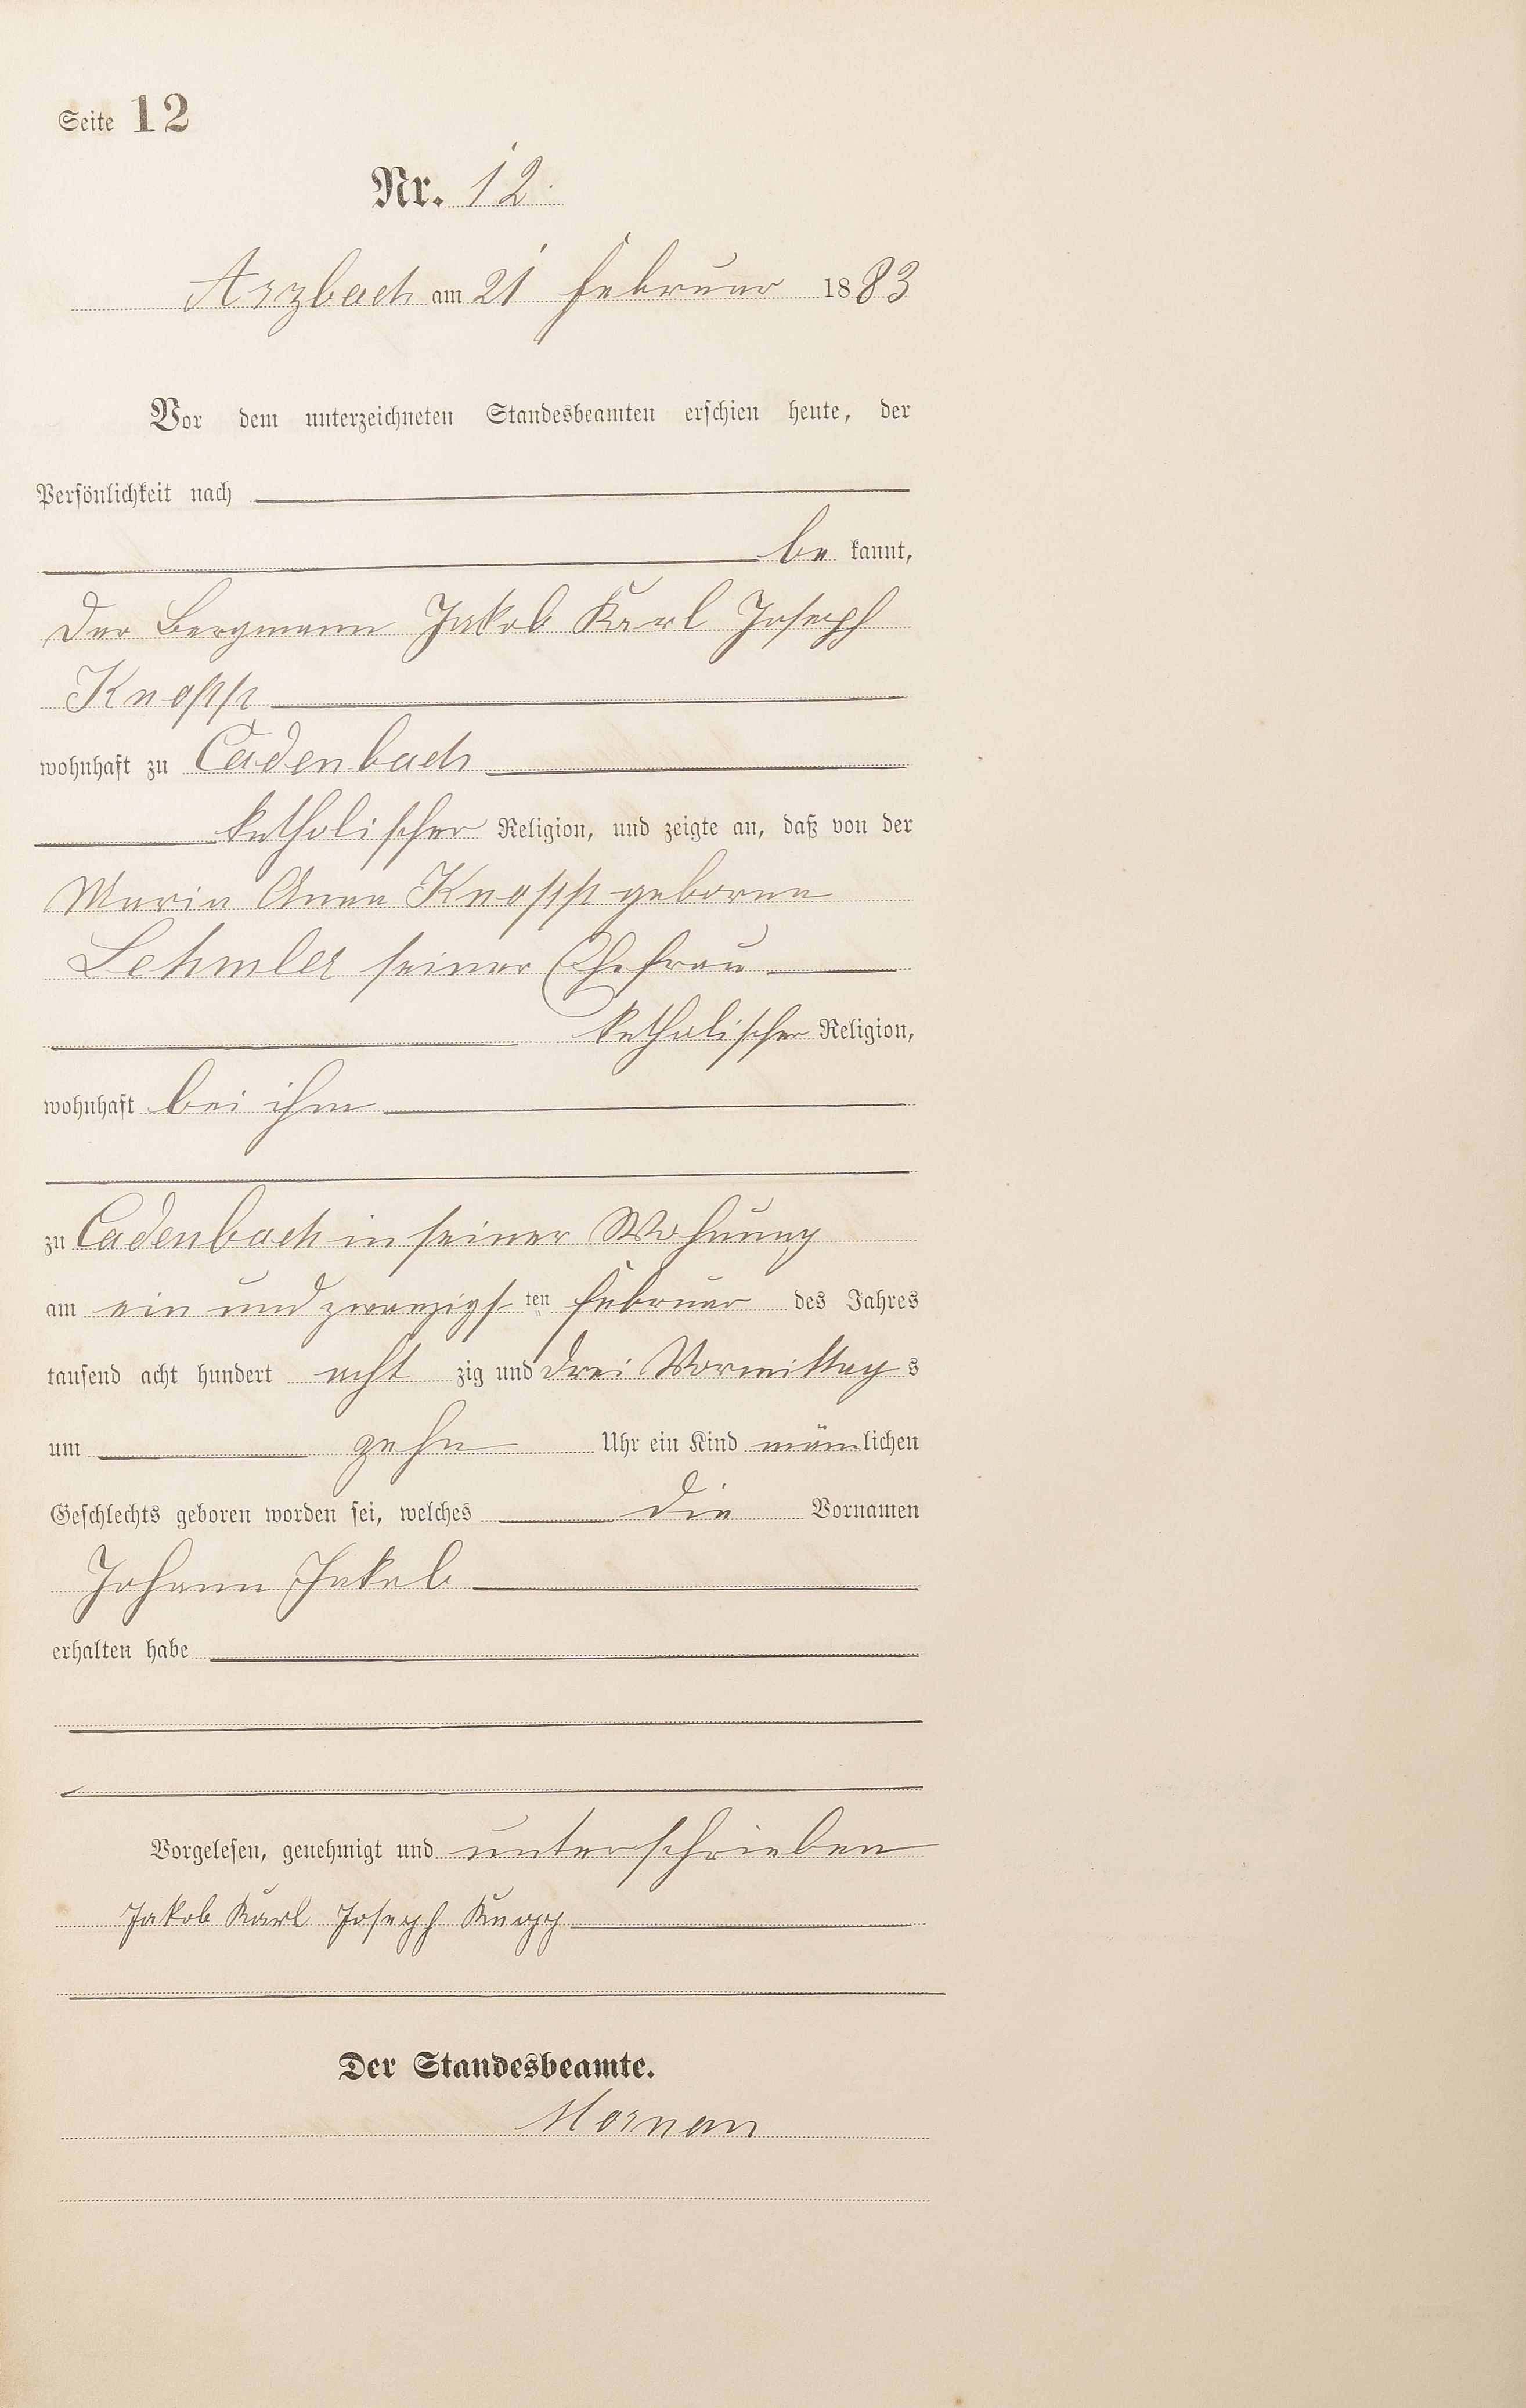 Seite 12
Nr. 12.
Arzbach am 21 Februar 1883
Vor dem unterzeichneten Standesbeamten erschien heute, der
Persönlichkeit nach
be kannt,
der Bergmann Jakob Karl Joseph
Knopp
wohnhaft zu Cadenbach
katholischer Religion, und zeigte an, daß von der
Maria Anna Knopp geborne
Lehmler seiner Ehefrau
katholischer Religion,
wohnhaft bei ihm
zu Cadenbach in seiner Wohnung
am ein und zwanzigsten Februar des Jahres
tausend acht hundert acht zig und drei Vormittags
um zehn Uhr ein Kind mänlichen
Geschlechts geboren worden sei, welches die Vornamen
Johann Jakob
erhalten habe
Vorgelesen, genehmigt und unterschrieben
Jakob Karl Joseph Knopp
Der Standesbeamte.